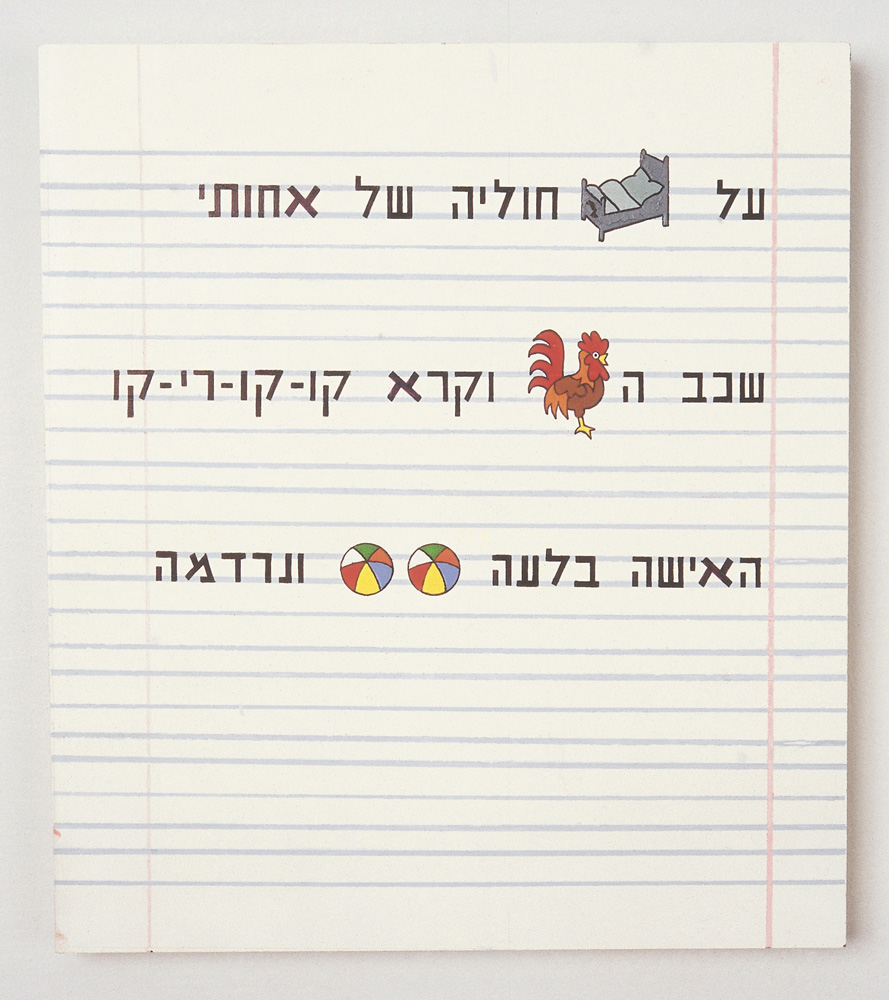 על חוליה של אחותי
שכב ה וקרא קו-קו-רי-קו
האישה בלעה ונרדמה